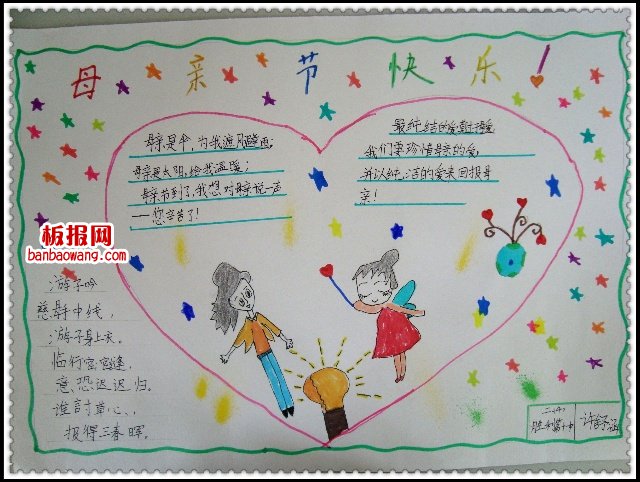 母亲节快乐！
母亲是伞，为我遮风避雨；
母亲是太阳，给我温暖；
母亲节到了，我想对母亲说一声
——您辛苦了！
最纯结的爱是母爱
我们要珍惜母亲的爱，
并以纯洁的爱来回报母
亲！
板报网
banbaowang.com
游子吟
慈母手中线，
游子身上衣。
临行密密缝，
意恐迟迟归。
谁言寸草心，
报得三春晖。
二、(4)
许